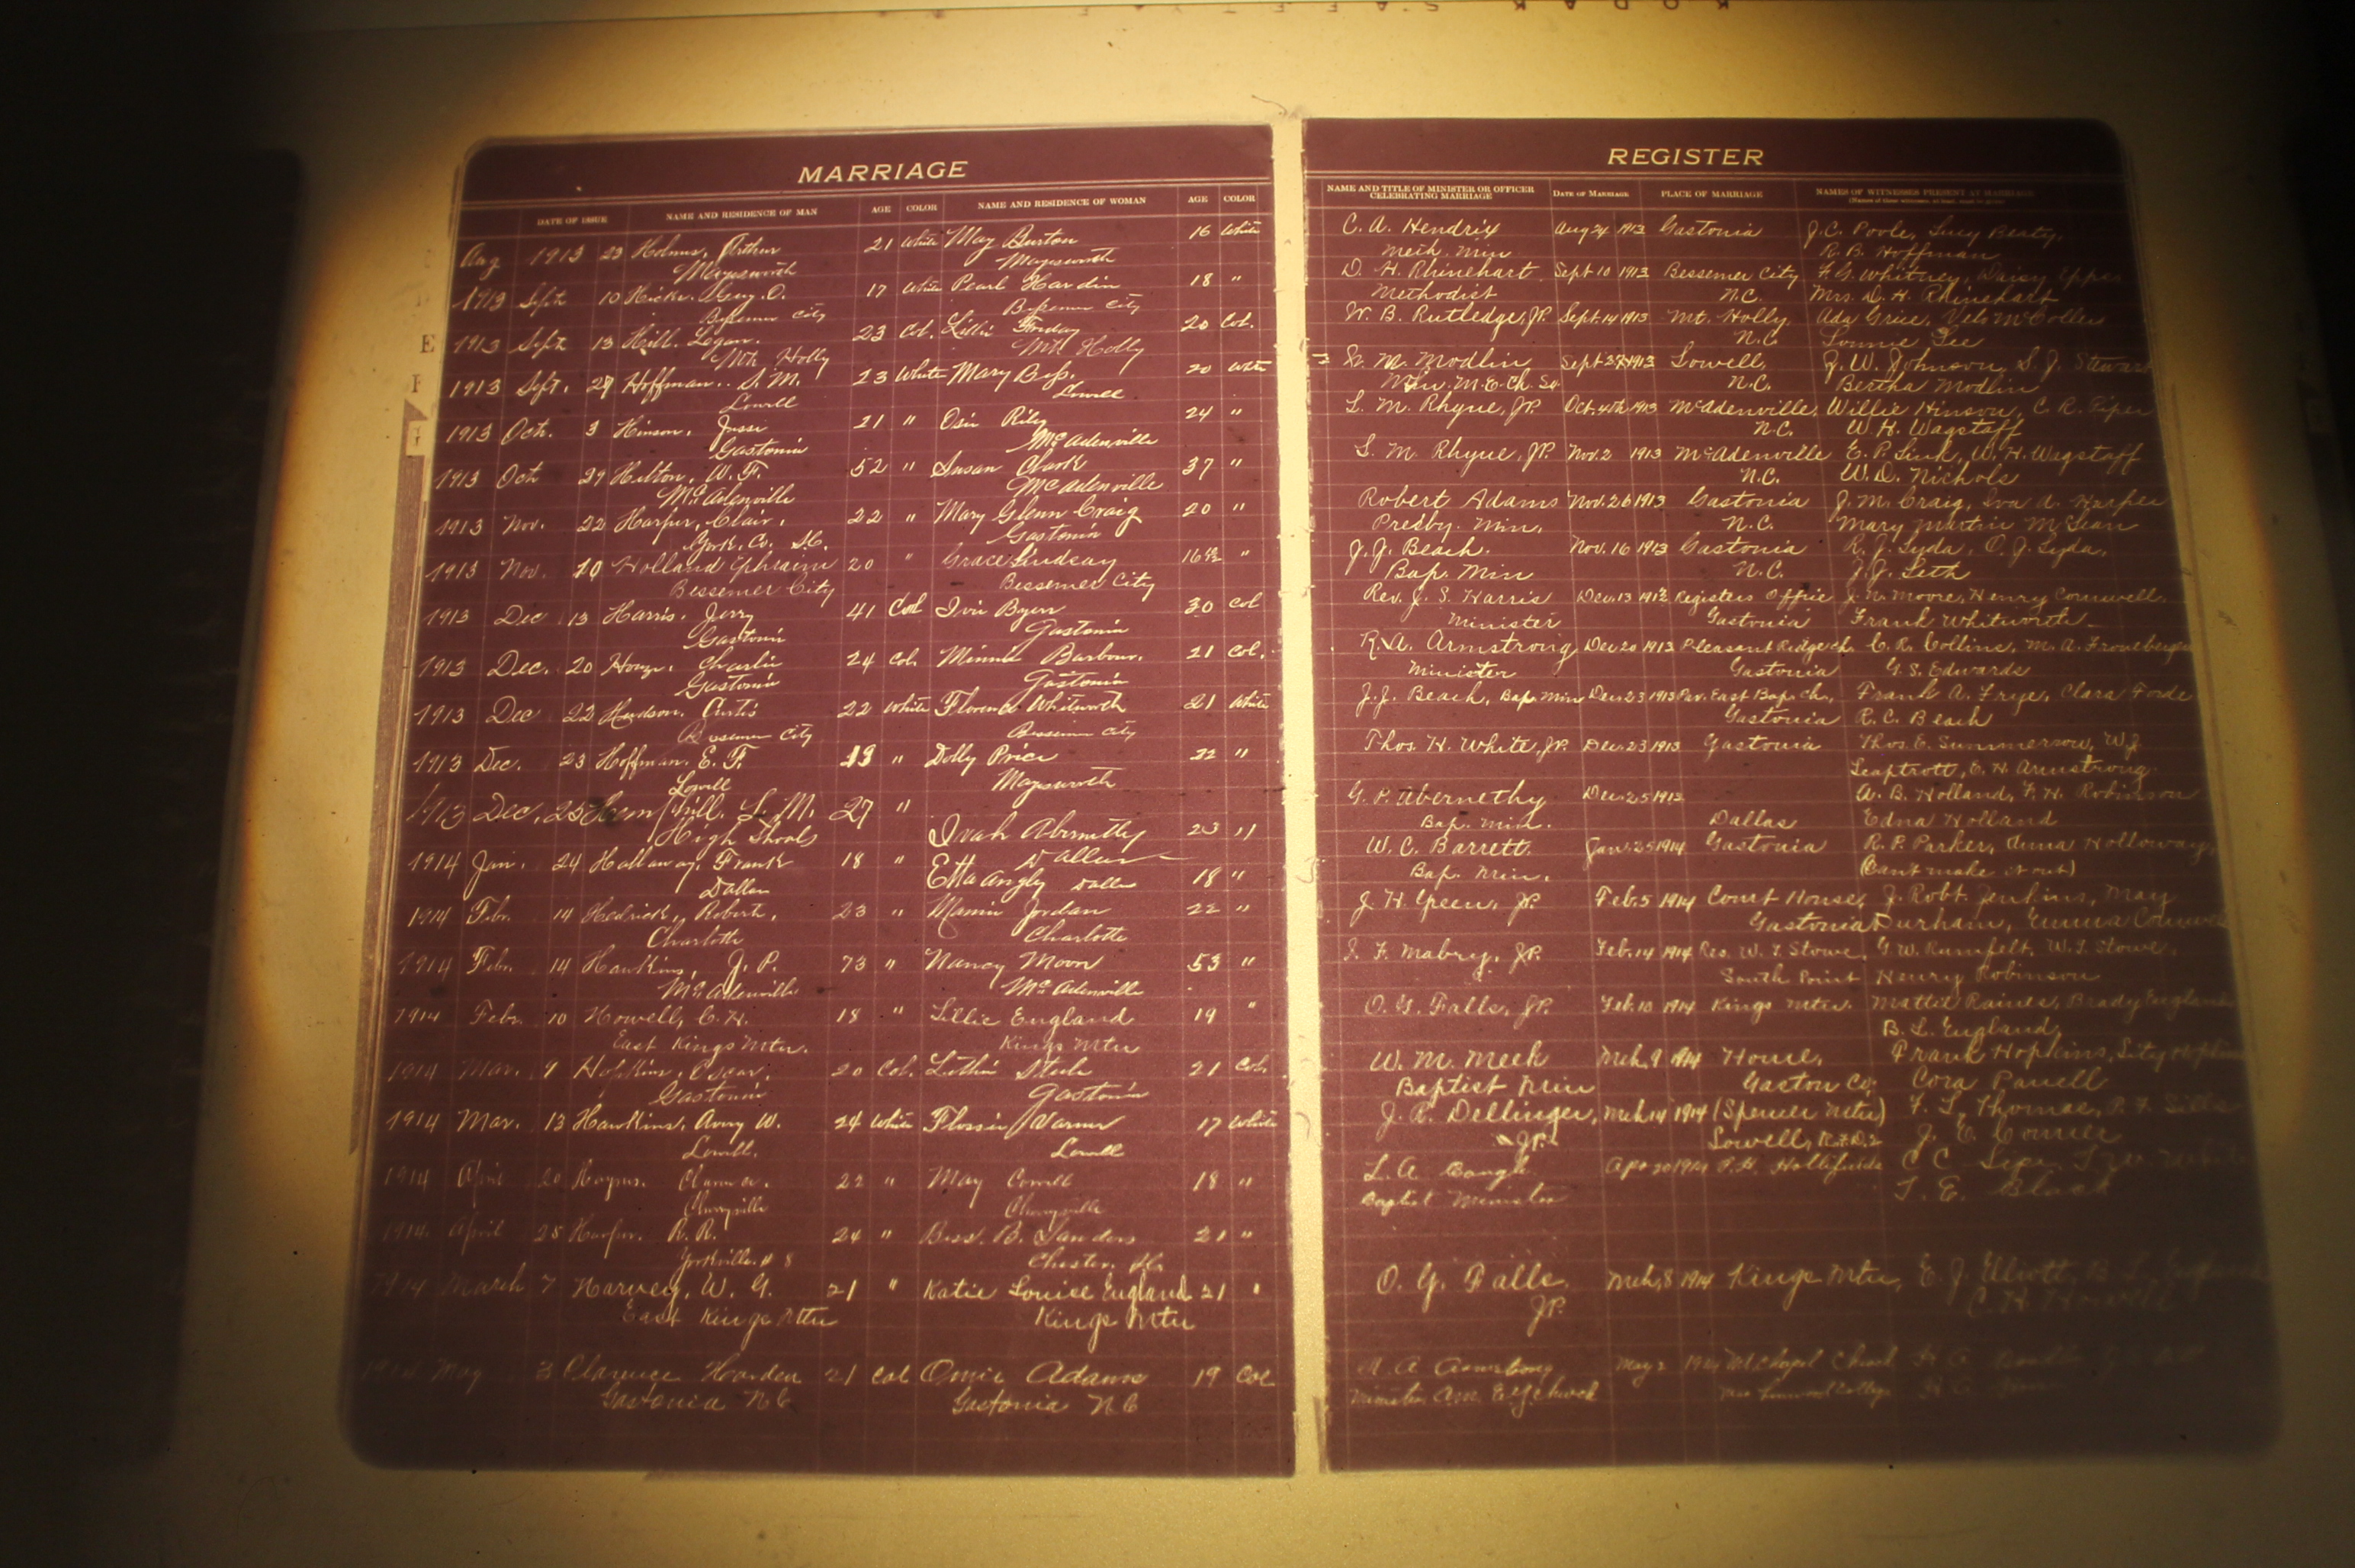 KODAK SAFETY
MARRIAGE
DATE OF ISSUE NAME AND RESIDENCE OF MAN AGE COLOR NAME AND RESIDENCE OF WOMAN AGE COLOR
Aug 1913 23 Holmes, Arthur 21 White May Burton 16 White
Mayesworth Mayesworth
1913 Sept 10 Guy O. 17 White Pearl Hardin 18 "
Bessemer City Bessemer City
1913 Sept 13 Hill. Logan. 23 Col. Lillie 20 Col.
Mt. Holly Mt. Holly
1913 Sept. 27 Hoffman.. S. M. 23 White Mary Bess. 20 White
Lowell Lowell
1913 Oct. 3 Hinson. Jesse 21 " Osie Riley 24 "
Gastonia McAdenville
1913 Oct 29 Hilton, W. F. 52 " Susan Clark 37 "
McAdenville McAdenville
1913 Nov. 22 Harper, Clair. 22 " Mary Glenn Craig 20 "
York. Co. S.C. Gastonia
1913 Nov. 10 Holland Ephraim 20 " Grace Lindsay 16 1/2 "
Bessemer City Bessemer City
1913 Dec 13 Harris. Jerry 41 Col Ivie Byers 30 Col
Gastonia Gastonia
1913 Dec. 20 Charlie 24 Col. Minnie Barbour. 21 Col.
Gastonia Gastonia
1913 Dec 22 Hudson. Curtis 22 White Florence Whitworth 21 White
Bessemer City Bessemer City
1913 Dec. 23 Hoffman. E. F. 19 " Dolly Price 22 "
Lowell Mayesworth
1913 Dec. 25 Hemphill. L. M. 27 "
High Shoals Ivah Abernethy 23 "
1914 Jan. 24 Hallaway, Frank 18 " Dallas
Dallas Etta Angly Dallas 18 "
1914 Febr. 14 Hedrick, Robert. 23 " Mamie Jordan 22 "
Charlotte Charlotte
1914 Febr. 14 Hawkins, J. P. 73 " Nancy Moon 53 "
McAdenville McAdenville
1914 Febr. 10 Howell, C. H. 18 " Lillie England 19 "
East Kings Mtn. Kings Mtn
1914 Mar. 9 Hopkins, Oscar. 20 Col. Steele 21 Col.
Gastonia Gastonia
1914 Mar. 13 Hawkins, Avery W. 24 White Flossie Warner 17 White
Lowell. Lowell
1914 April 20 Haynes. Clarence. 22 " May 18 "
Cherryville Cherryville
1914. April 25 Harper. R. R. 24 " Bess. B. Sanders 21 "
Yorkville. # 8 Chester. S.C.
1914 March 7 Harvey, W. G. 21 " Katie Louise England 21 "
East Kings Mtn Kings Mtn
1914 May 3 Clarence Harden 21 Col Omie Adams 19 Col
Gastonia N C Gastonia N C
REGISTER
NAME AND TITLE OF MINISTER OR OFFICER CELEBRATING MARRIAGE DATE OF MARRIAGE PLACE OF MARRIAGE NAMES OF WITNESSES PRESENT AT MARRIAGE
C. A. Hendrix Aug 24 1913 Gastonia J.C. Poole, Lucy Beaty,
Meth. Min R. B. Hoffman
D. H. Rhinehart Sept 10 1913 Bessemer City F. G. Whitney, Daisy Eppes
Methodist N.C. Mrs. D. H. Rhinehart
W. B. Rutledge, JP. Sept. 14 1913 Mt. Holly Ada Grice,
N.C. Lonnie Lee
W. M. Modlin Sept 27 1913 Lowell, J. W. Johnson, S. J. Stewart
Min. M.E. Ch. So. N.C. Bertha Modlin
L. M. Rhyne, JP. Oct. 4th 1913 McAdenville, Willie Hinson, C. R. Piper
N.C. W. H. Wagstaff
L. M. Rhyne, JP. Nov. 2 1913 McAdenville E. P. Link, W. H. Wagstaff
N.C. W. D. Nichols
Robert Adams Nov. 26 1913 Gastonia J. M. Craig, Iva A. Harper
Presby. Min. N.C. Mary Martin McLean
J. J. Beach. Nov. 16 1913 Gastonia R. J. Lyda, O. J. Lyda,
Bap. Min N.C. J. J. Leth
Rev. J. S. Harris Dec. 13 1913 Registers Office J. N. Moore, Henry Cornwell.
Minister Gastonia Frank Whitworth
R. A. Armstrong, Dec 20 1913 Pleasant Ridge ch. C. R. Collins, M. A. Froneberger
Minister Gastonia G. S. Edwards
J. J. Beach, Bap. Min Dec. 23 1913 Par. East Bap Ch., Frank A. Frye, Clara Forde
Gastonia R. C. Beach
Thos. H. White, JP. Dec. 23 1913 Gastonia Thos. E. Summerrow, W. J.
Leaptrott, E. H. Armstrong
G. P. Abernethy Dec. 25 1913 A. B. Holland, F. H. Robinson
Bap. Min. Dallas Edna Holland
W. C. Barrett. Jan. 25 1914 Gastonia R. P. Parker, Anna Holloway,
Bap. Min. (Can't make it out)
J. H. Speen, JP. Feb. 5 1914 Court House, J. Robt. Jenkins, May
Gastonia Durham, Emma Cornwell
I. F. Mabry, JP. Feb. 14 1914 Res. W. T. Stowe, G. W. Rumfelt, W. T. Stowe,
South Point Henry Robinson
O. G. Falls, JP. Feb. 10 1914 Kings Mtn. Mattie Raines, Brady England
B. L. England
W. M. Meek Mch. 9 1914 Home, Frank Hopkins, Hopkins
Baptist Min Gaston Co; Cora Panell
J. R. Dellinger, Mch 14 1914 (Spencer Mtn) F. L. Thomas,
JP. Lowell, R.F.D. 2
L. A. Apr 20 1914 P. H. Hollifields
Baptist Minister T. E. Black
O. G. Falls, Mch, 8 1914 Kings Mtn, E. J. Elliott,
JP. C. H. Howell
Armstrong May 1914 Chapel Church
Minister